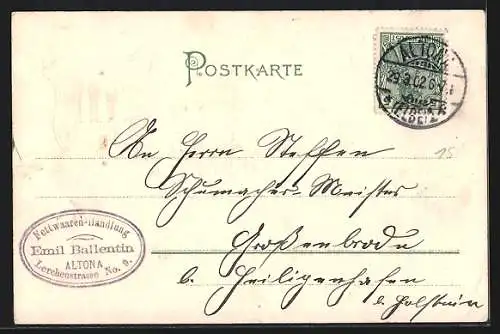 POSTKARTE
ALTONA
29.3.02.6-7N
(ELBE)
An Herrn Steffen
Schumacher-Meister
Großenbrode
b. Heiligenhafen
Holstein
15
Fettwaaren-Handlung
Emil Ballentin
ALTONA
Lerchenstrasse No. 9.